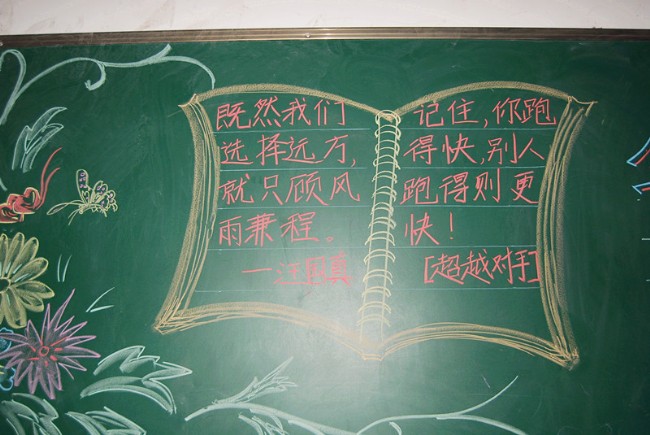 既然我们
选择远方,
就只顾风
雨兼程。
一汪国真
记住,你跑
得快,别人
跑得则更
快!
[超越对手]